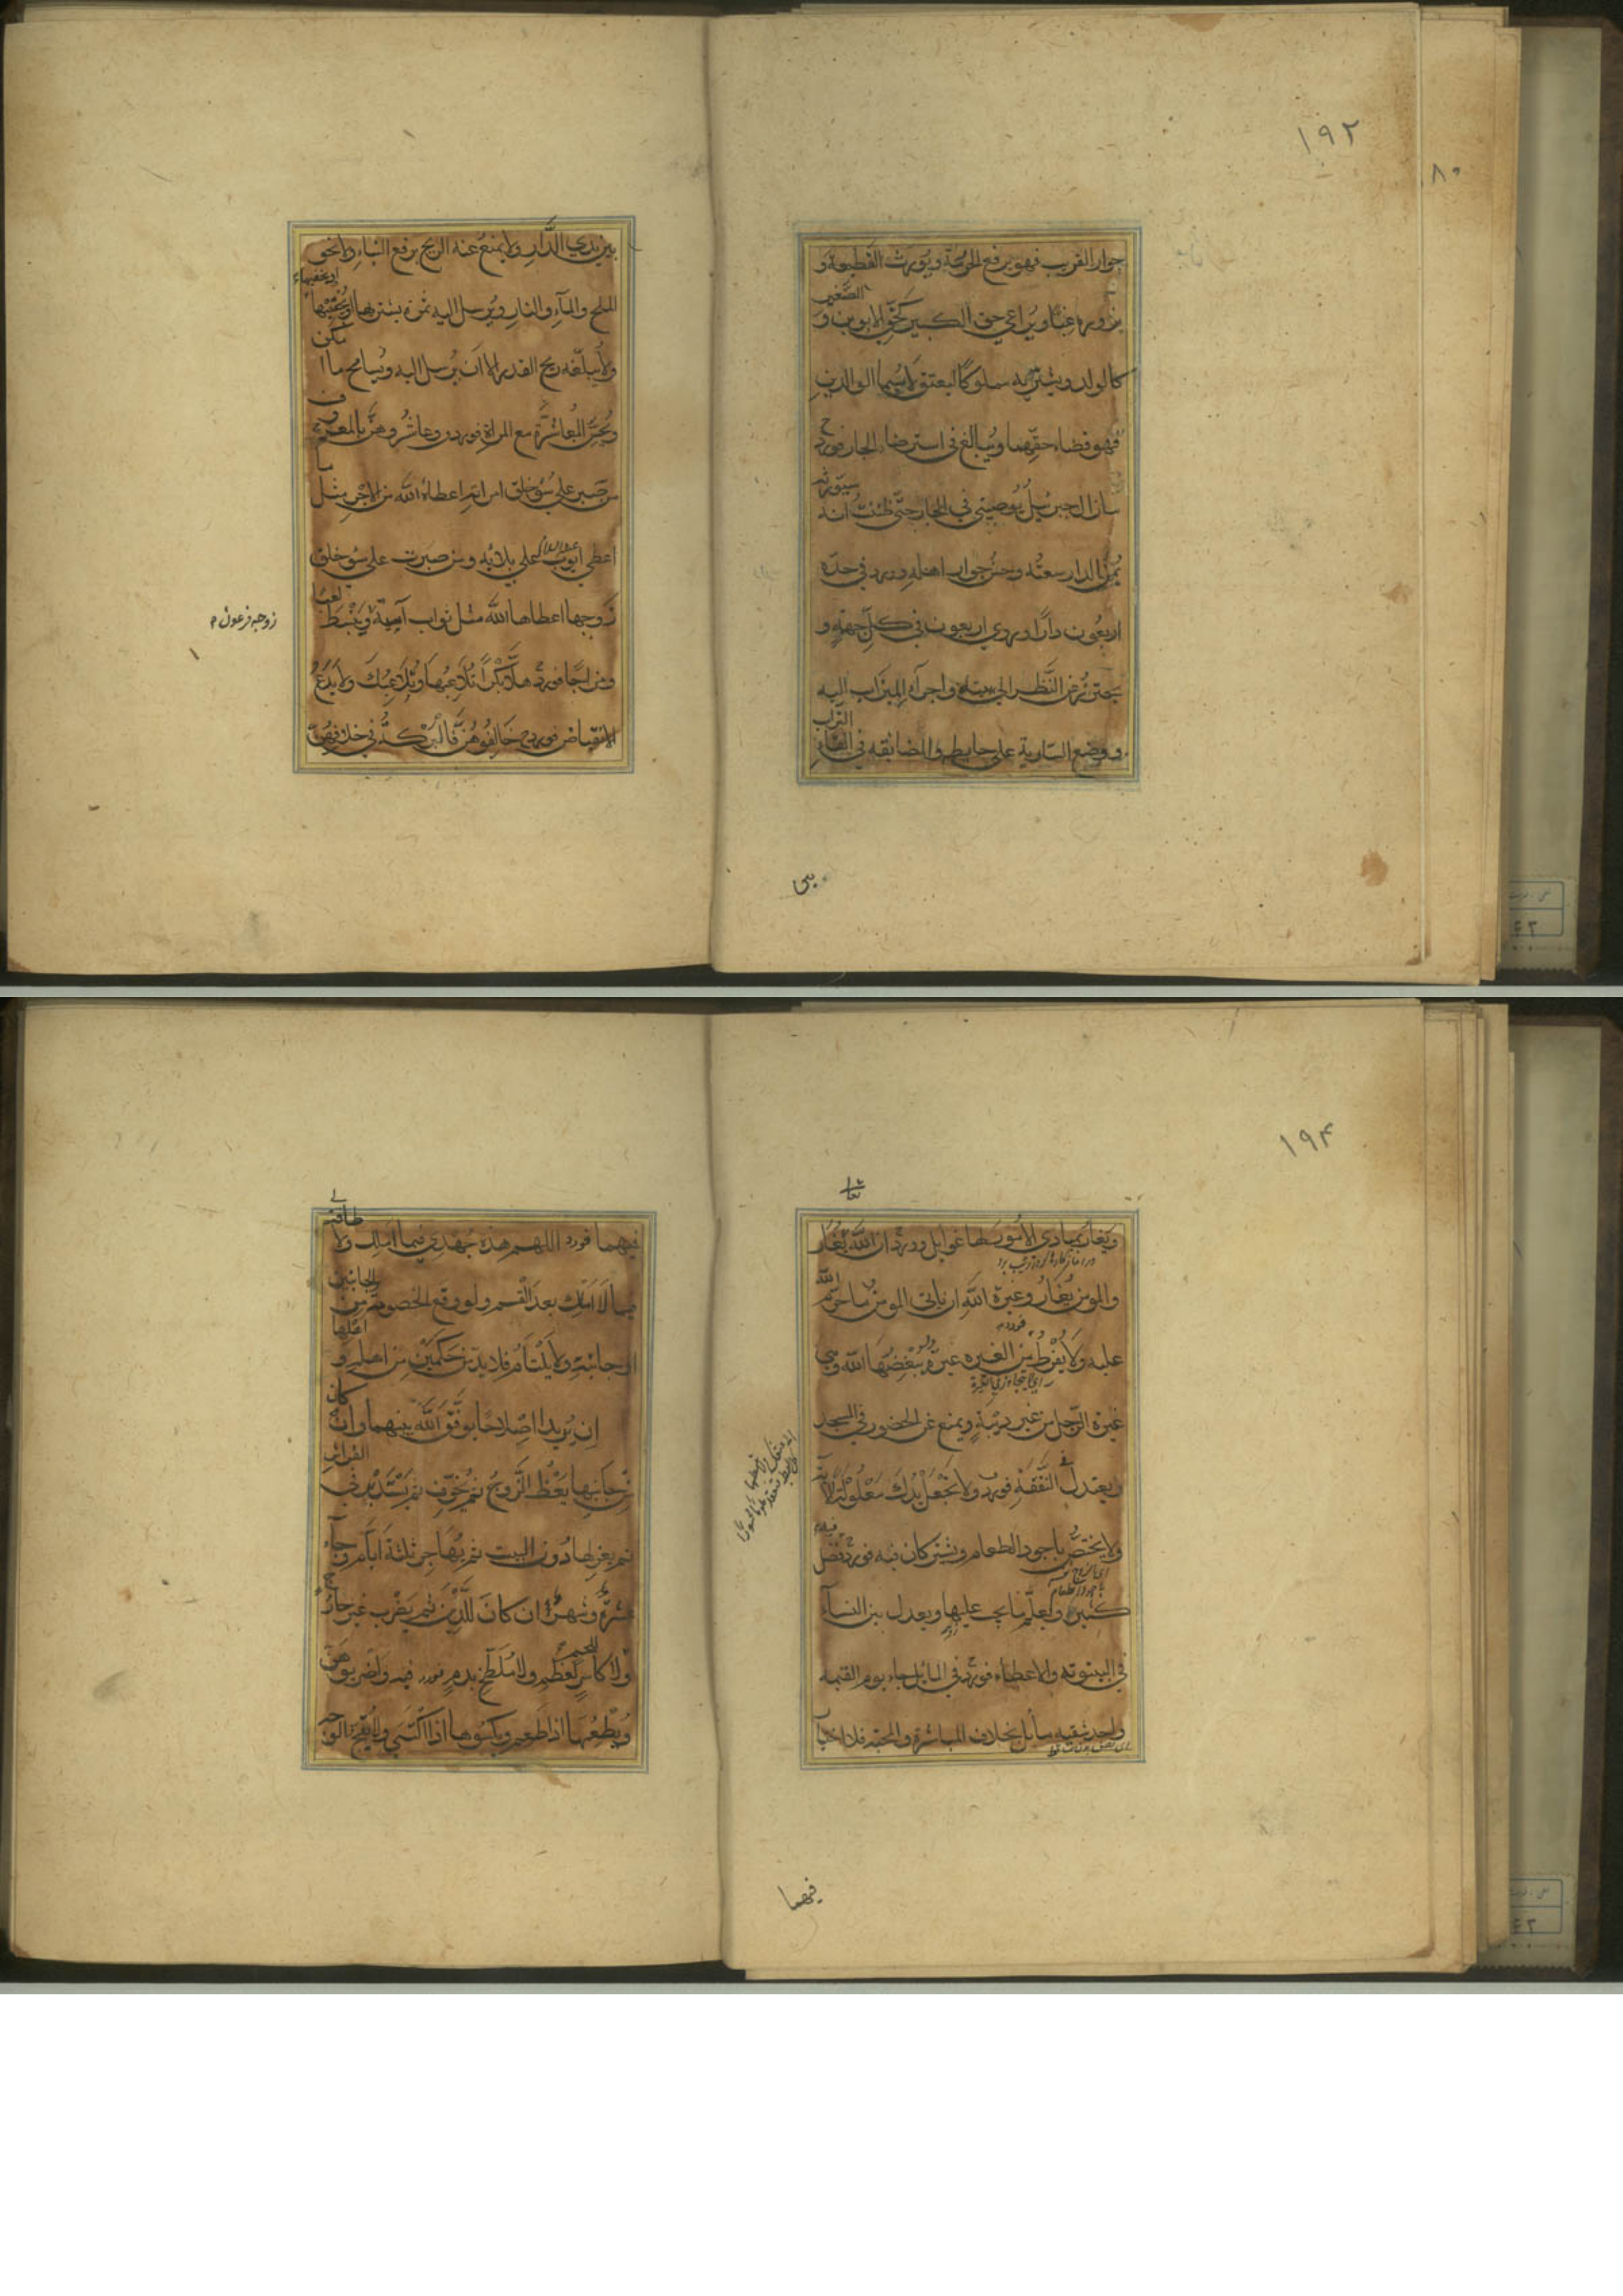 ١٩٢
٨٠
جوار القريب فهو يرفع الحرمة ويورث القطيعة و
الصغير
يزوره غبا ويراعي حق الكبير كحق الابوين و
كالولد ويشتريه مملوكا ليعتق لا سيما الوالدين
فهو قضاء حقهما ويبالغ في استرضاء الجار فورد
ما زال جبرئيل يوصيني في الجار حتى ظننت انه
سيورثه
يمن الدار سعته وحسن جوار اهله وورد في حده
اربعون دارا وروي اربعون في كل جهة و
يحترز عن النظر الى بيته واجراء الميزاب اليه
التراب
ووضع السارية على حايطه والمضايقه في القاء
بين يدي الدار ولا يمنع عنه الريح برفع البناء ونحو
الملح والماء والنار ويرسل اليه ثمرة يشتريها او يخفيها
ولا يبلغه ريح القدر الا ان يرسل اليه ويسامح ما ا
مكن
ويحسن المعاشرة مع المراة فورد وعاشروهن بالمعروف
من صبر على سوء خلق امراته اعطاه الله من الاجر مثل
ما
اعطي ايوب عليه السلام على بلائه ومن صبرت على سوء خلق
زوجها اعطاها الله مثل ثواب آسية وينبسط
لعبا
زوجه فرعون
ومزاحا فورد هلا بكرا تلاعبها وتلاعبك ولا يدع
الانقباض فورد خالفوهن فالبركة في خلافهن
١٩٤
تعالى
ويغار بمبادي الامور لها غوايل وورد ان الله يغار
والمومن يغار وغيرة الله ان ياتي المومن ما حرم
الله
عليه ولا يفرط من الغيرة غيرة يبغضها الله وهي
غيرة الرجل من غير ريبة ويمنع عن الحضور في المسجد
ويعتدل في النفقة فورد ولا تجعل يدك مغلولة الآية
ولا يختص باجود الطعام وشيئ كان فيه فورد فضل
كثير ويعلم ما يجب عليها ويعدل بين النساء
في البيتوتة والاعطاء فورد في المايل جاء يوم القيمة
واحد شقيه مايل بخلاف المباشرة والمحبة فلا اختيار
فيهما
فيهما فورد اللهم هذه جهدي فيما املك ولا
طاقة لي
فيما لا املك بعد القسم ولو وقع الخصومة من
الجانبين
او جانبه ولا يلتئام فلا بد من حكمين من اهله و
اهلها
ان يريدا اصلاحا يوفق الله بينهما وان
كان
من جانبها يعظ الزوج ثم يخوف ثم يستدبر في
الفراش
ثم يعزلها دون البيت ثم يهاجر ثلثة ايام وجاء
عشرة وشهر ان كان للدين ثم يضرب غير جارح
ولا كاسر لعظم ولا ملطخ بدم فورد فيه واضربوهن
ويطعمها اذا طعم ويكسوها اذا اكتسى ولا يقبح الوجه